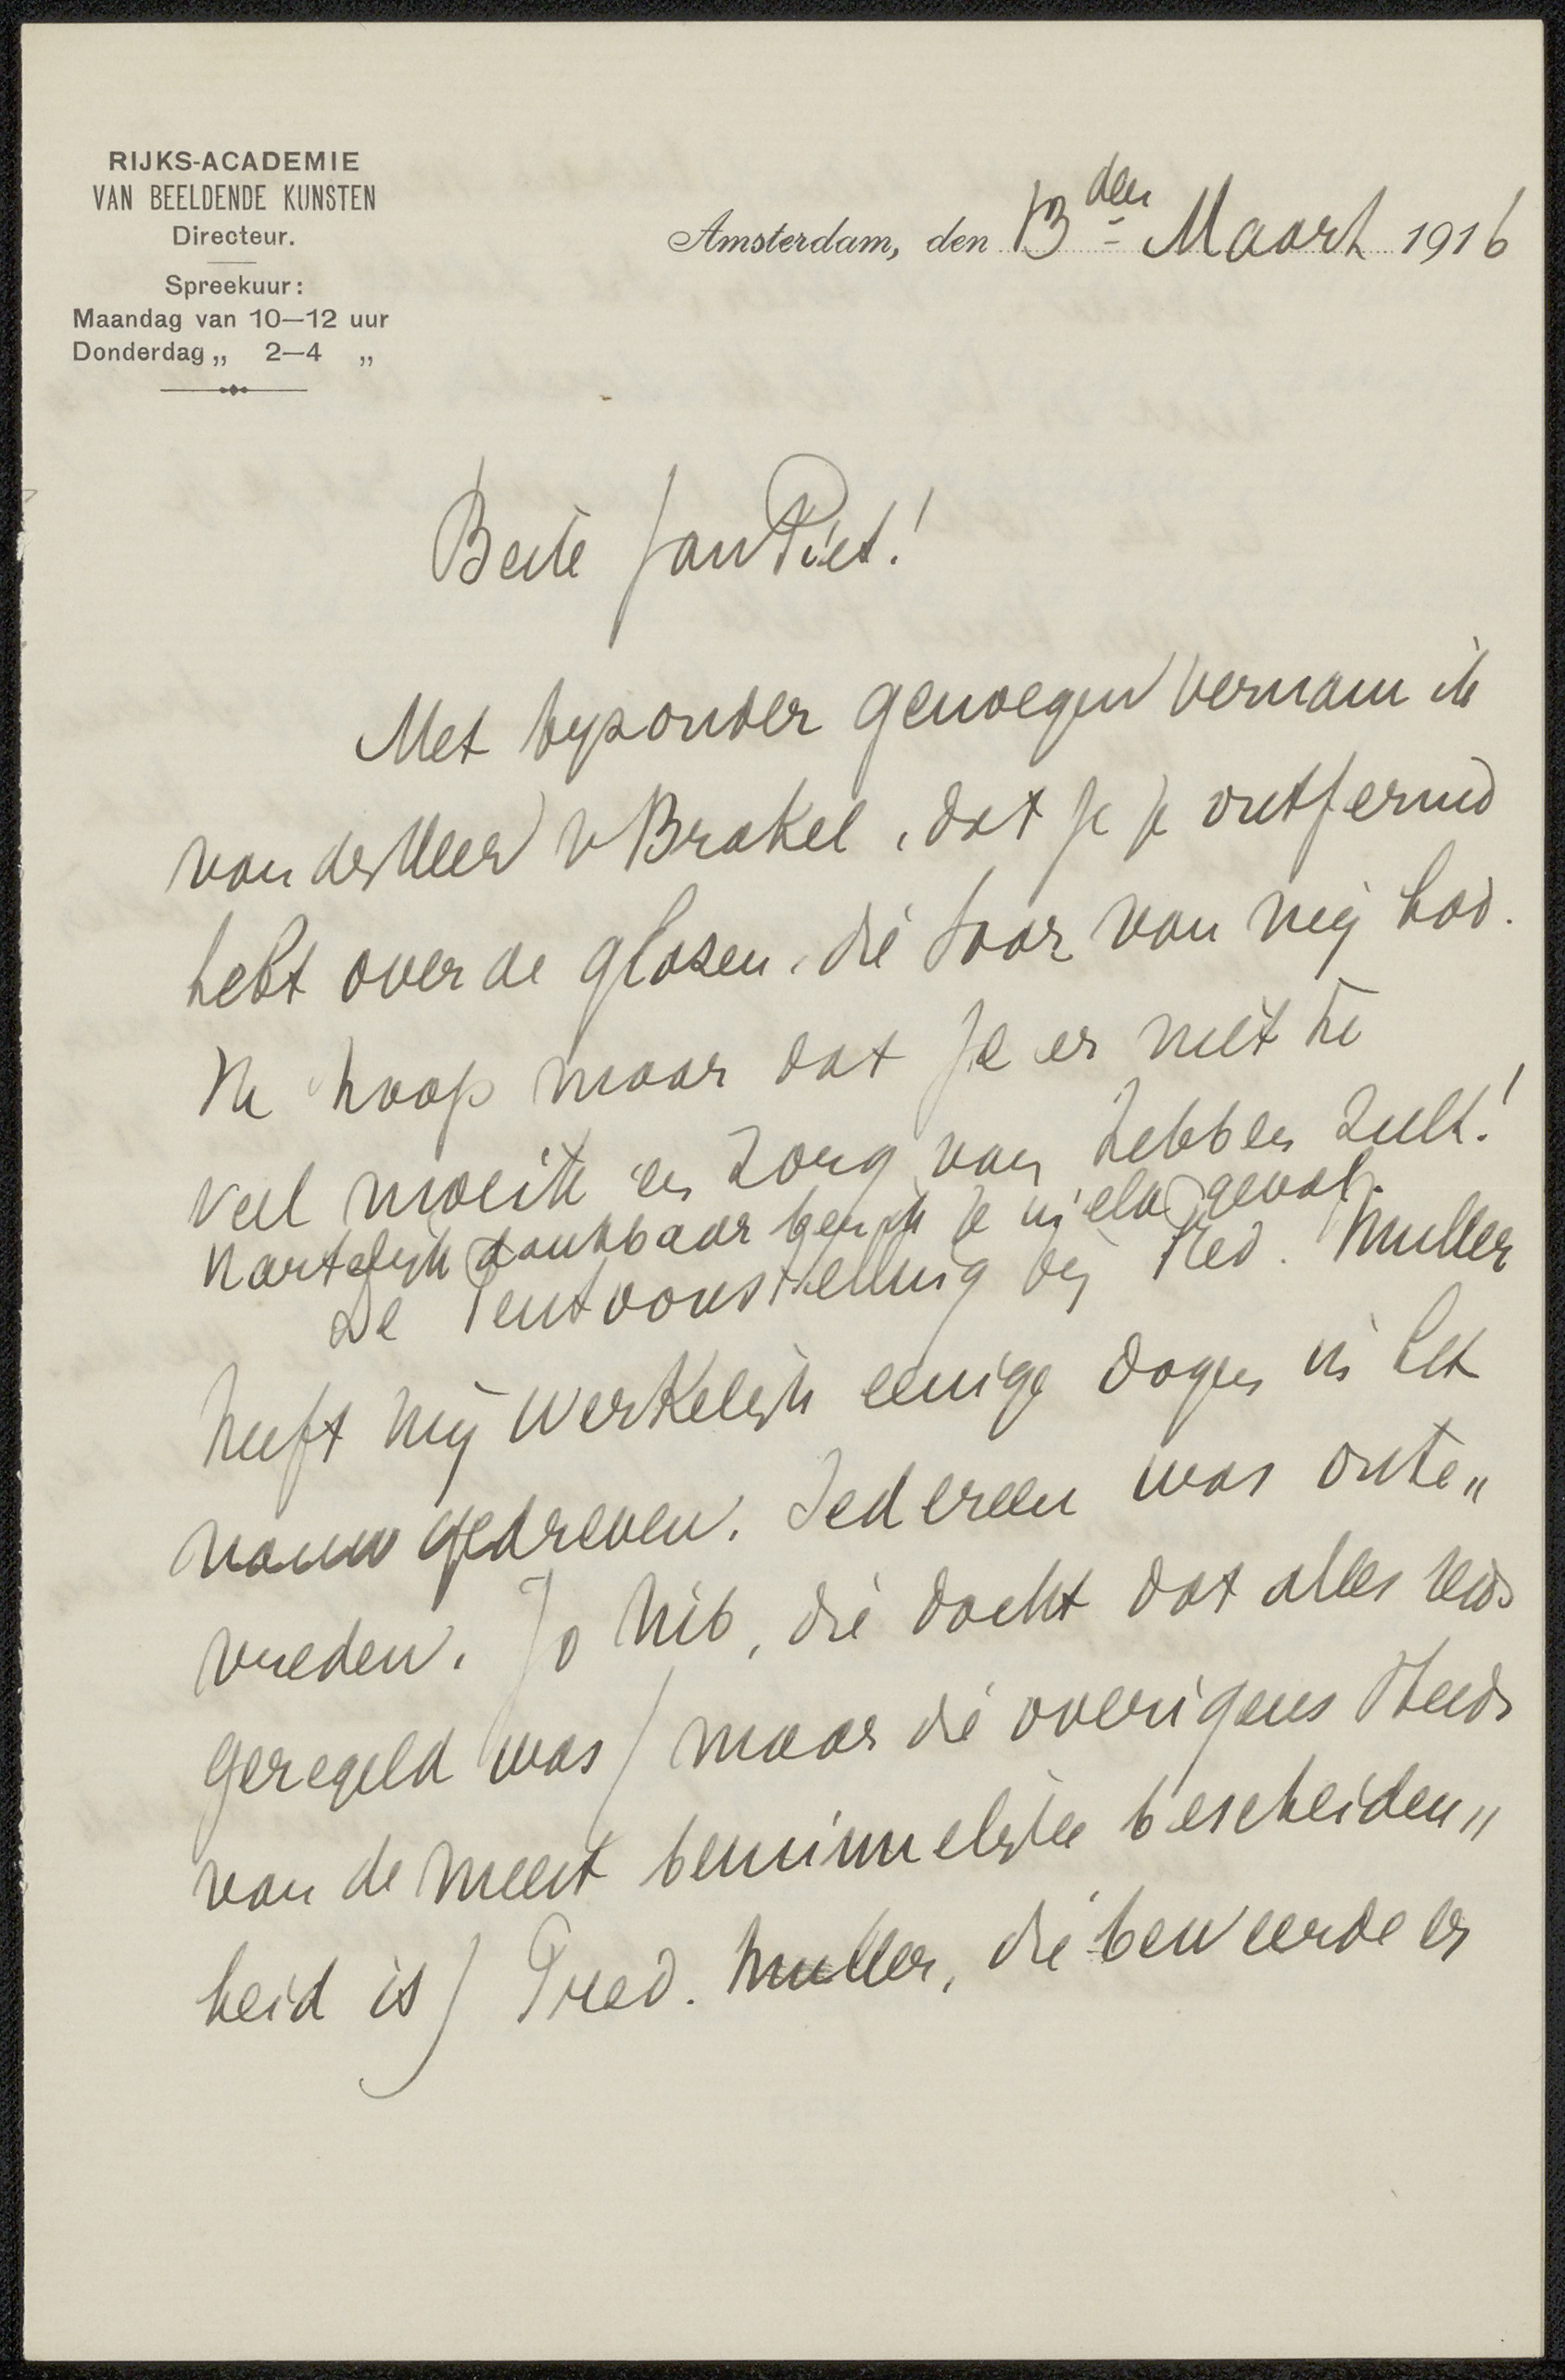 RIJKS-ACADEMIE
VAN BEELDENDE KUNSTEN
Directeur.
Spreekuur:
Maandag van 10—12 uur
Donderdag „ 2—4 „
Amsterdam, den 13den Maart 1916
Beste Jan Piet!
Met byzonder genoegen vernam ik
van der Meer v Brakel, dat je je ontfermd
hebt over de glazen, die daar van mij had.
Ik hoop maar dat je er niet te
veel moeite en zorg van hebben zult!
Hartelijk dankbaar ben ik je in elk geval.
De Tentoonstelling bij Fred. Muller
heeft mij werkelijk eenige dagen in het
nauw gedreven. Iedereen was onte„
vreden. Jo , die dacht dat alles reeds
geregeld was (maar die overigens steeds
van de meest beminnelijke bescheiden„
heid is) Fred. Muller, die beweerde er